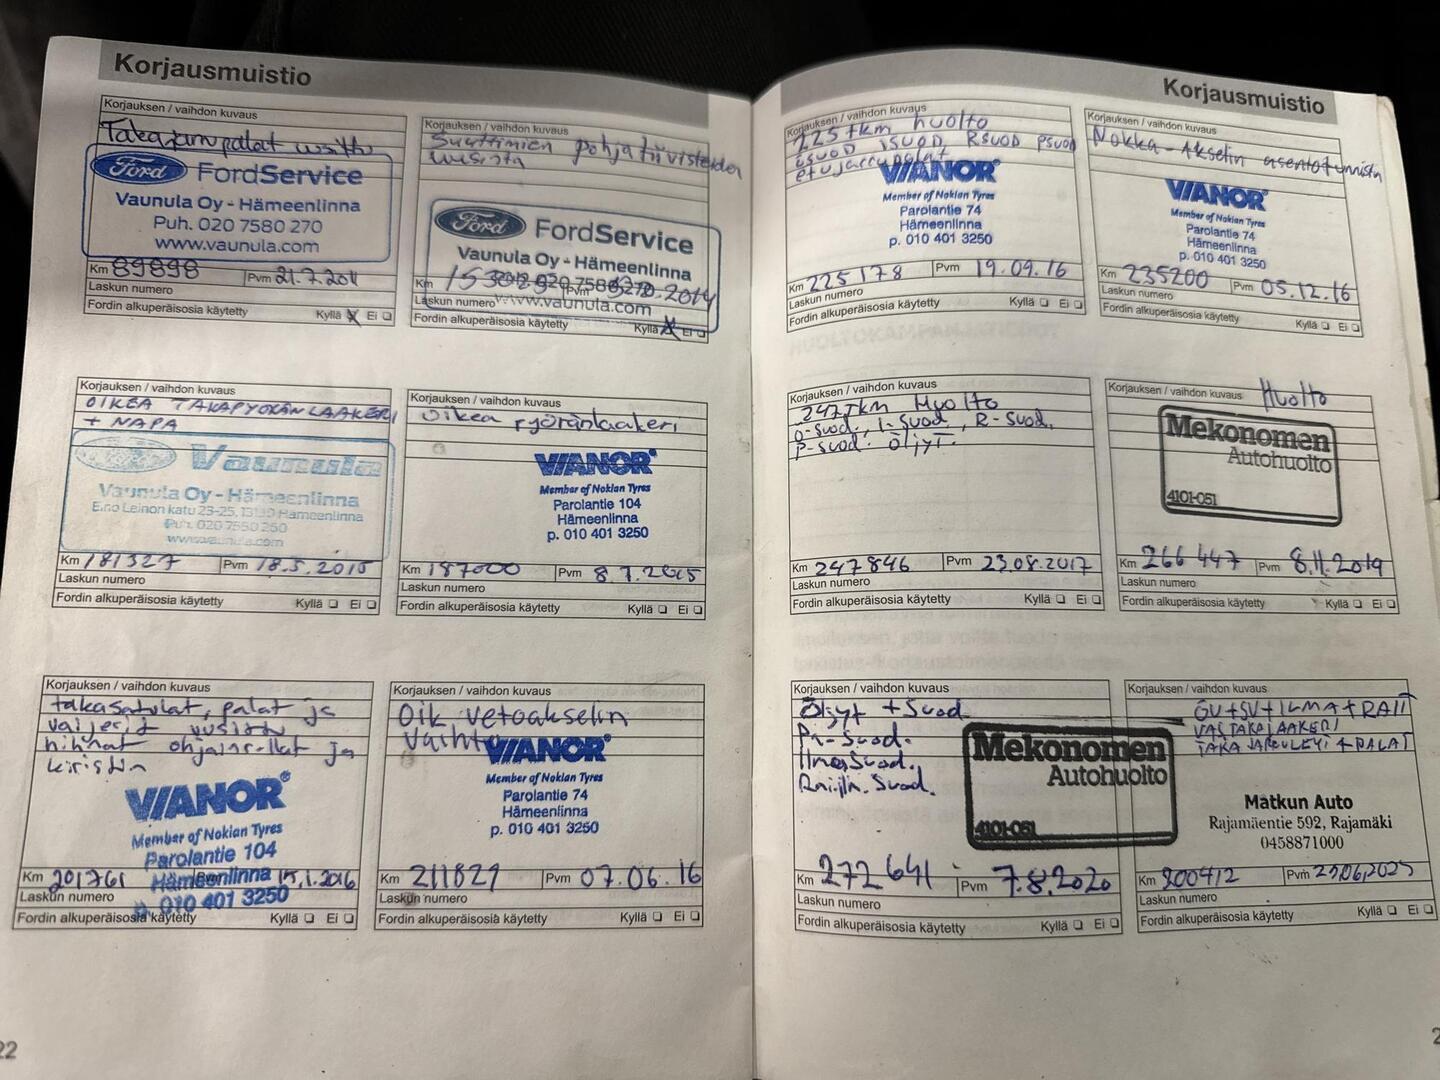 Korjausmuistio
Korjauksen / vaihdon kuvaus
Takajarrupalat uusittu
Ford FordService
Vaunula Oy - Hämeenlinna
Puh. 020 7580 270
www.vaunula.com
Km 89898 Pvm 21.7.2011
Laskun numero
Fordin alkuperäisosia käytetty Kyllä X Ei
Korjauksen / vaihdon kuvaus
Suuttimien pohjatiivisteiden
uusinta
Ford FordService
Vaunula Oy - Hämeenlinna
020 7580 270
www.vaunula.com
Km Pvm 2014
Laskun numero
Fordin alkuperäisosia käytetty Kyllä X Ei
Korjauksen / vaihdon kuvaus
OIKEA TAKAPYÖRÄN LAAKERI
+ NAPA
Vaunula
Vaunula Oy - Hämeenlinna
Eino Leinon katu 23-25, Hämeenlinna
Puh. 020 7580 260
www.vaunula.com
Km 181327 Pvm 18.5.2015
Laskun numero
Fordin alkuperäisosia käytetty Kyllä Ei
Korjauksen / vaihdon kuvaus
Oikea pyöränlaakeri
VIANOR
Member of Nokian Tyres
Parolantie 104
Hämeenlinna
p. 010 401 3250
Km 187000 Pvm 8.7.2015
Laskun numero
Fordin alkuperäisosia käytetty Kyllä Ei
Korjauksen / vaihdon kuvaus
takasatulat, palat ja
vaijerit uusittu
hihnat ohjainrullat ja
kiristin
VIANOR
Member of Nokian Tyres
Parolantie 104
Hämeenlinna
p. 010 401 3250
Km 201761 Pvm 15.1.2016
Laskun numero
Fordin alkuperäisosia käytetty Kyllä Ei
Korjauksen / vaihdon kuvaus
Oik vetoakselin
vaihto
VIANOR
Member of Nokian Tyres
Parolantie 74
Hämeenlinna
p. 010 401 3250
Km 211829 Pvm 07.06.16
Laskun numero
Fordin alkuperäisosia käytetty Kyllä Ei
22
Korjausmuistio
Korjauksen / vaihdon kuvaus
225tkm huolto
ösuod isuod Rsuod psuod
etujarrupalat
VIANOR
Member of Nokian Tyres
Parolantie 74
Hämeenlinna
p. 010 401 3250
Km 225178 Pvm 19.09.16
Laskun numero
Fordin alkuperäisosia käytetty Kyllä Ei
Korjauksen / vaihdon kuvaus
Nokka-Akselin asentotunnistin
VIANOR
Member of Nokian Tyres
Parolantie 74
Hämeenlinna
p. 010 401 3250
Km 235200 Pvm 05.12.16
Laskun numero
Fordin alkuperäisosia käytetty Kyllä Ei
Korjauksen / vaihdon kuvaus
247tkm Huolto
Ö-suod, I-Suod, R-Suod,
P-suod. Öljyt.
Km 247846 Pvm 23.08.2017
Laskun numero
Fordin alkuperäisosia käytetty Kyllä Ei
Korjauksen / vaihdon kuvaus
Huolto
Mekonomen
Autohuolto
4101-051
Km 266 447 Pvm 8.11.2019
Laskun numero
Fordin alkuperäisosia käytetty Kyllä Ei
Korjauksen / vaihdon kuvaus
Öljyt + Suod.
Pa-Suod.
IlmaSuod.
Raijln. Suod.
Mekonomen
Autohuolto
4101-051
Km 272 641 Pvm 7.8.2020
Laskun numero
Fordin alkuperäisosia käytetty Kyllä Ei
Korjauksen / vaihdon kuvaus
ÖV+SV+ILMA+RAIT
VAS TAKALAAKERI
TAKA JARRULEVY + PALAT
Matkun Auto
Rajamäentie 592, Rajamäki
0458871000
Km 300412 Pvm
Laskun numero
Fordin alkuperäisosia käytetty Kyllä Ei